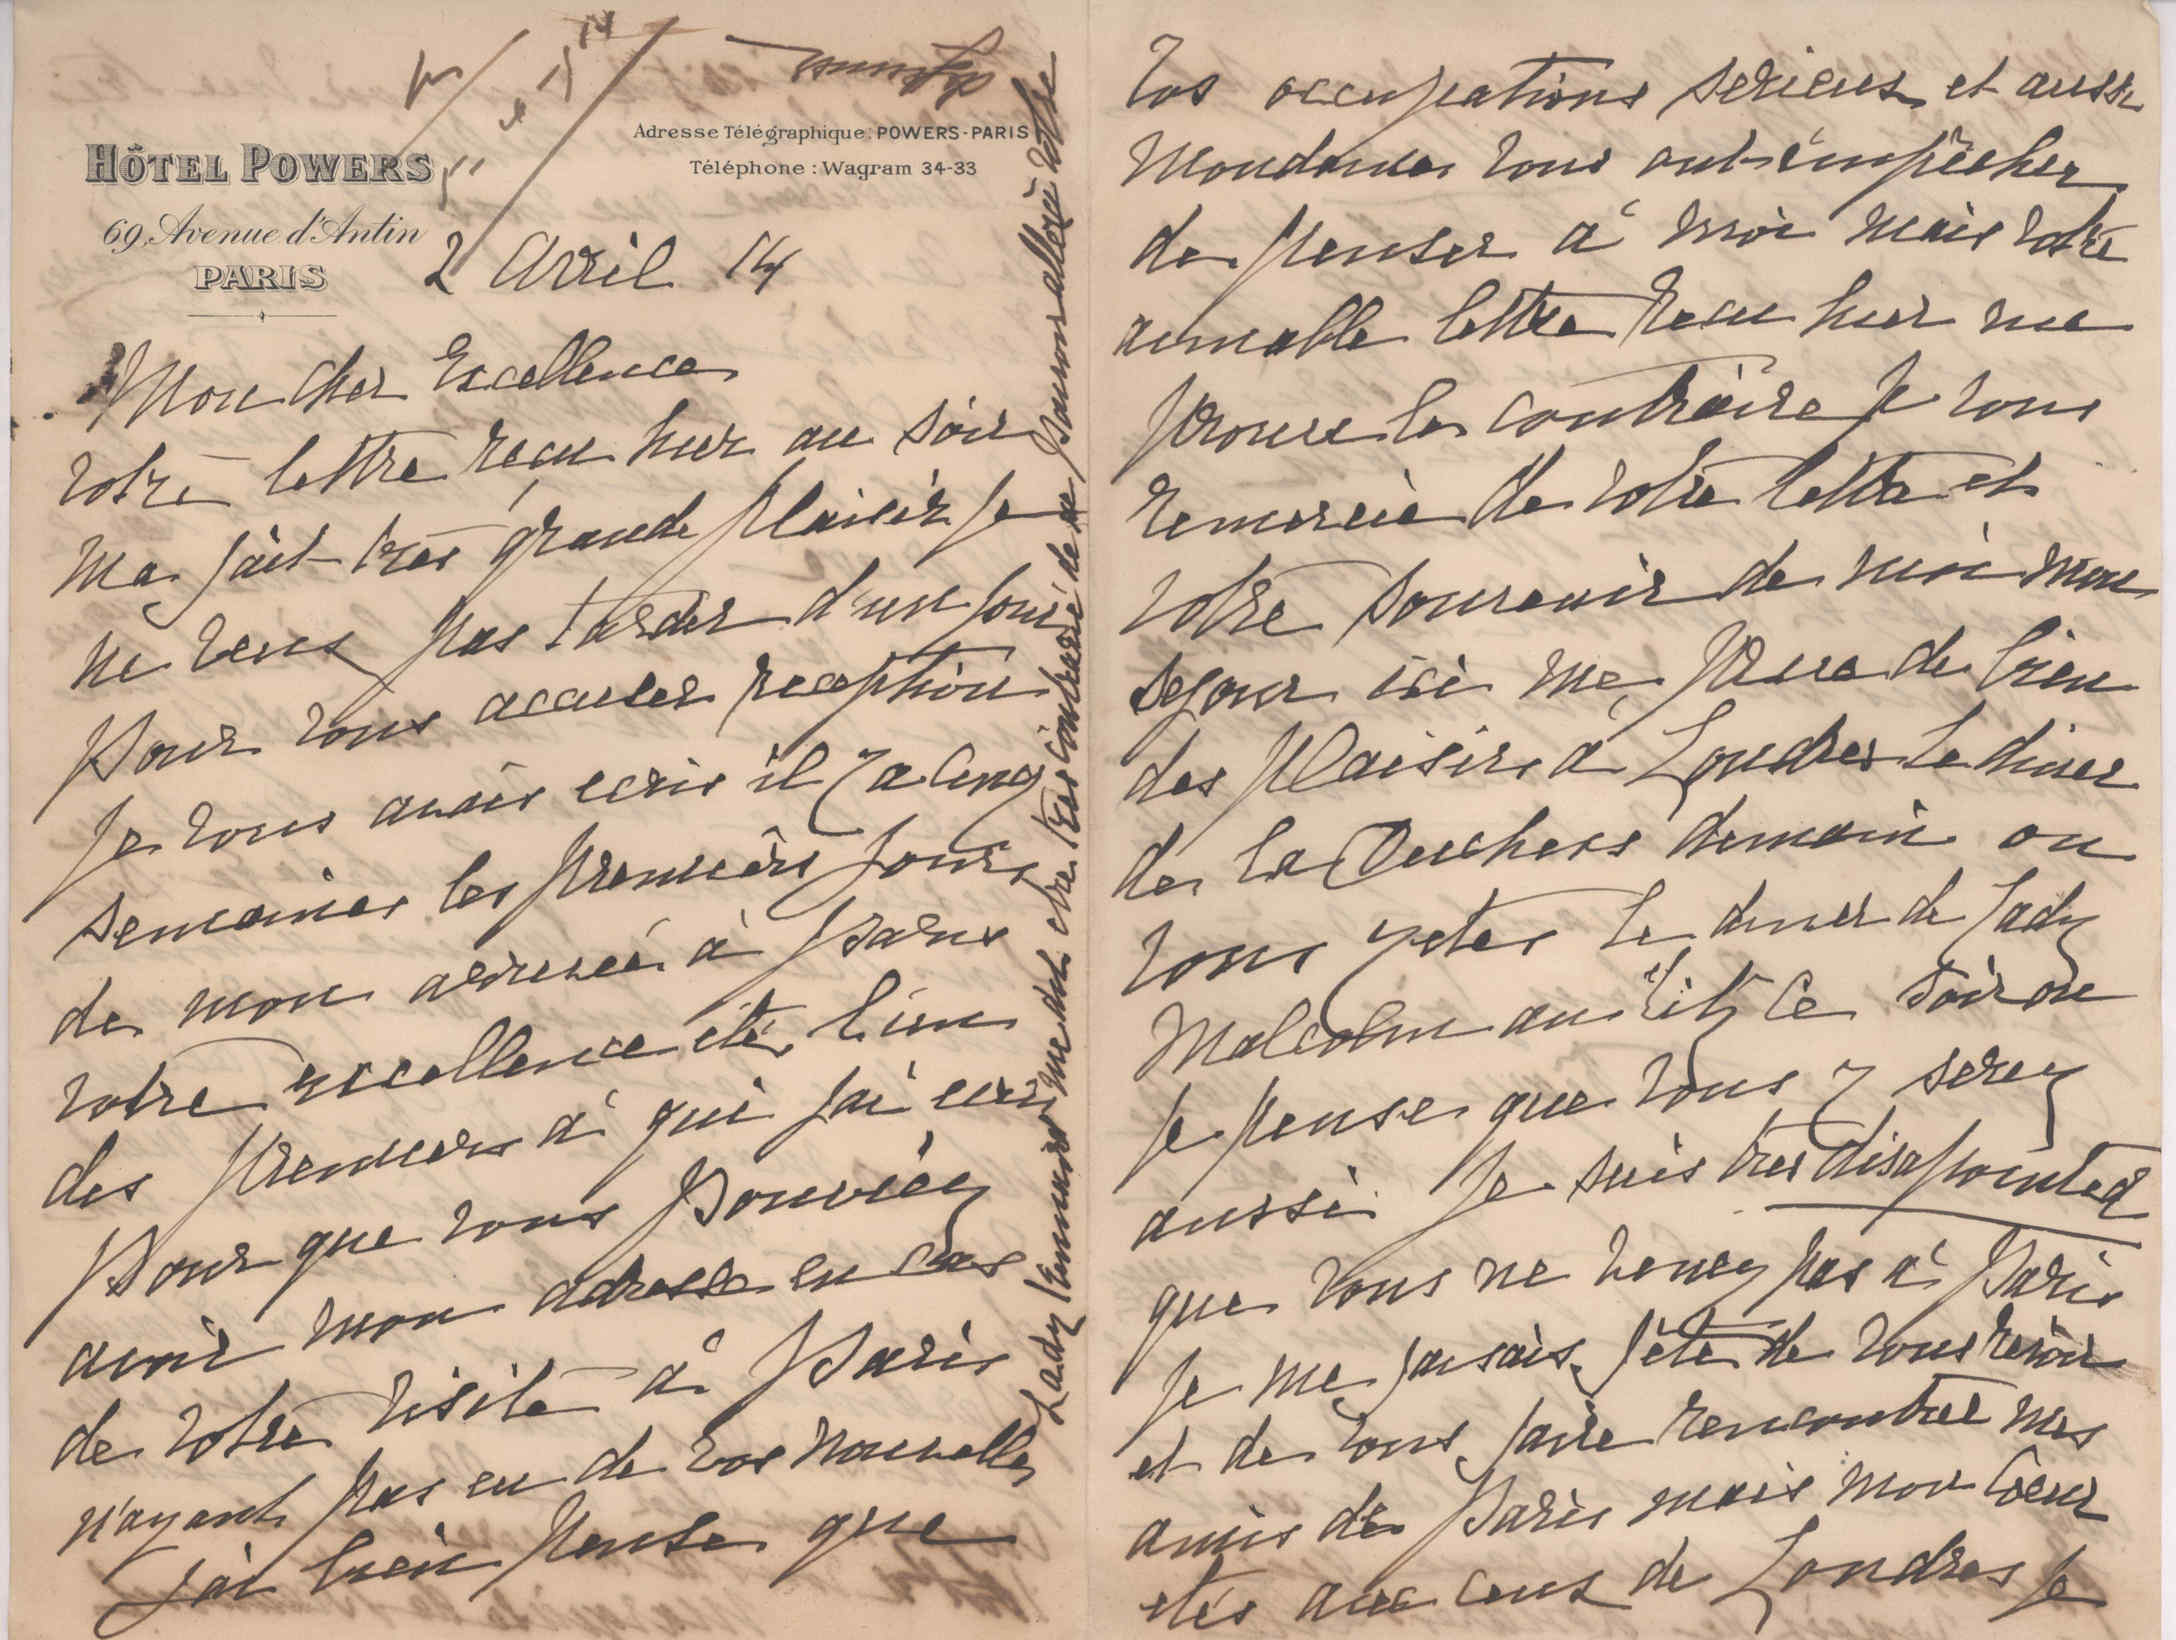 HÔTEL POWERS
69, Avenue d'Antin
PARIS
Adresse Télégraphique: POWERS-PARIS
Téléphone: Wagram 34-33
2 Avril 14
Mon cher Excellence
votre lettre reçu hier au soir
ma fait très grande plaisir je
ne veux pas tarder d'un jour
pour vous accuser reception
je vous avais ecris il y a cinq
semaines les premiers jours
de mon arrivée à Paris
votre excellence été l'un
des premiers à qui j'ai ecris
pour que vous pouviez
avoir mon adresse en cas
de votre visite à Paris
n'ayant pas eu de vos nouvelles
j'ai bien penser que
Lady Kennard me dit etre tres contrarié de ne pouvoir aller à votre
vos occupations serieuses et aussi
mondaines vous ont empêcher
de penser à moi mais votre
aimable lettre reçu hier me
prouve le contraire je vous
remercie de votre lettre et
votre souvenir de moi mon
sejour ici me prive de bien
des plaisirs à Londres le diner
de la Duchess demain ou
vous y etes le diner de Lady
Malcolm au Ritz ce soir ou
je pense que vous y serez
aussi je suis tres disapointed
que vous ne venez pas à Paris
je me faisais fête de vous revoir
et de vous faire rencontrer mes
amis de Paris mais mon coeur
etés avec ceux de Londres je